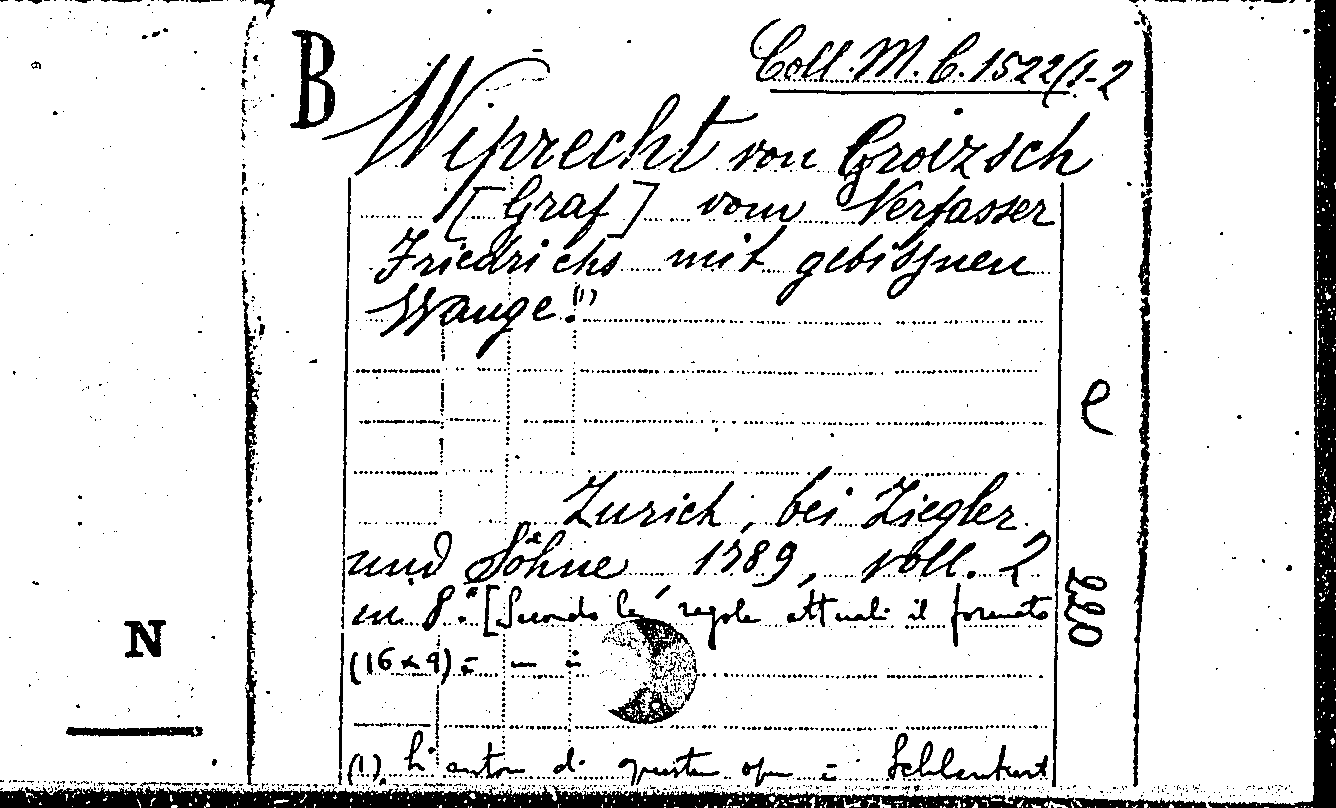 B
Coll. M. C. 1522/1-2
Wiprecht von Groizsch
[Graf] vom Verfasser
Friedrichs mit gebissnen
Wange.(1)
e
Zurich, bei Ziegler
und Söhne 1789, voll. 2
in 8.° [Secondo le regole attuali il formato
(16 x 9) =
220
N
(1) L'autore di questa opera è Schlenkert